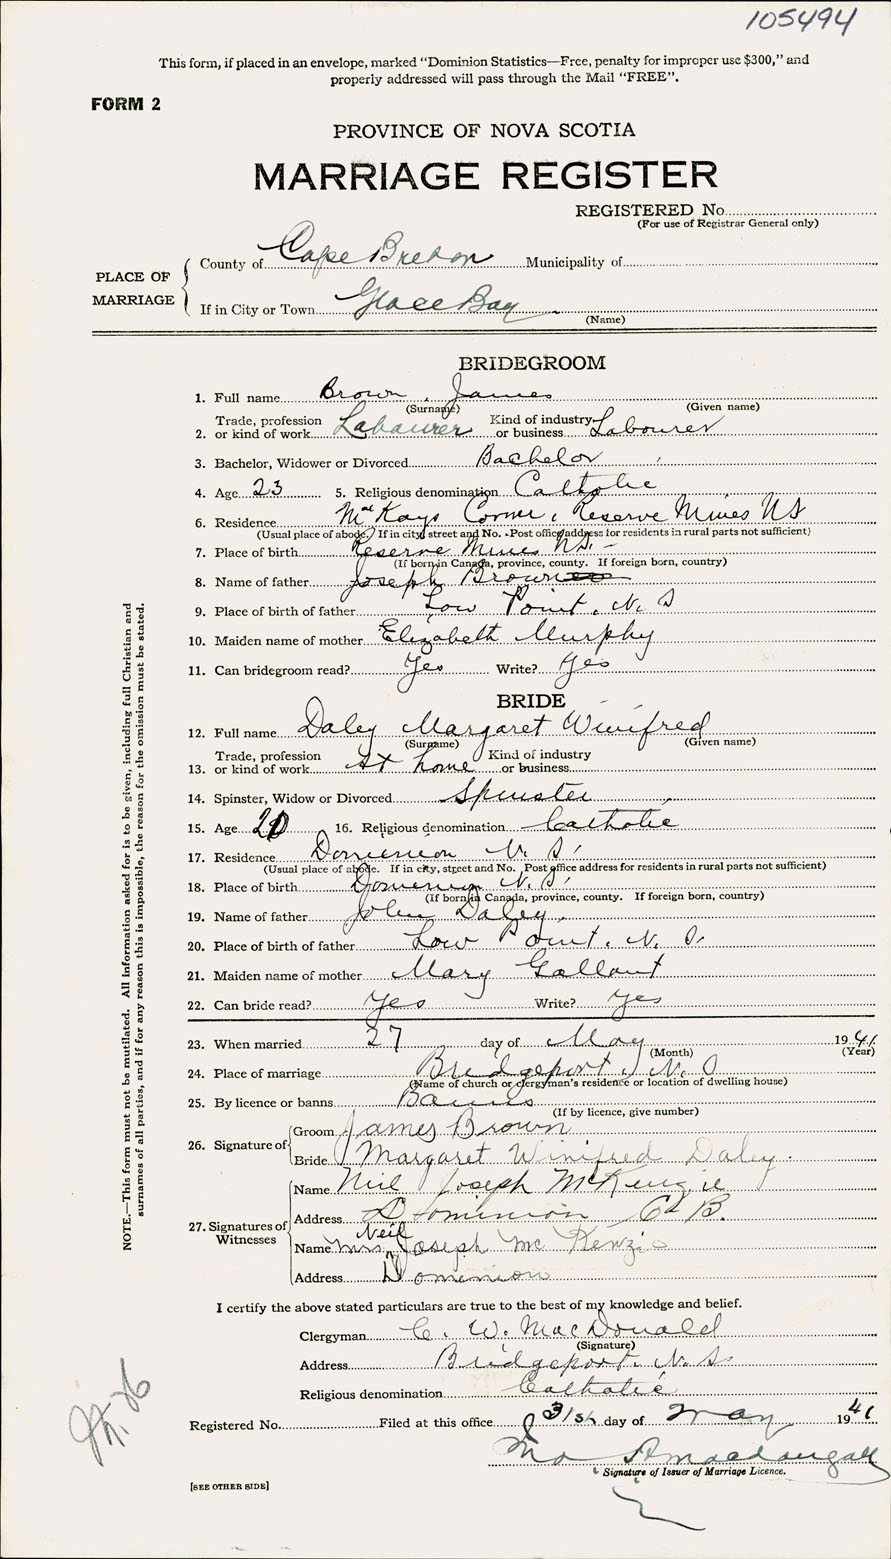 105494
This form, if placed in an envelope, marked "Dominion Statistics—Free, penalty for improper use $300," and
properly addressed will pass through the Mail "FREE".
FORM 2
PROVINCE OF NOVA SCOTIA
MARRIAGE REGISTER
REGISTERED No.
(For use of Registrar General only)
PLACE OF MARRIAGE
County of Cape Breton Municipality of
If in City or Town Glace Bay
(Name)
BRIDEGROOM
1. Full name Brown, James
(Surname) (Given name)
2. Trade, profession or kind of work Labourer Kind of industry or business Labourer
3. Bachelor, Widower or Divorced Bachelor
4. Age 23 5. Religious denomination Catholic
6. Residence McKays Corner, Reserve Mines NS
(Usual place of abode. If in city, street and No. Post office address for residents in rural parts not sufficient)
7. Place of birth Reserve Mines N.S.
(If born in Canada, province, county. If foreign born, country)
8. Name of father Joseph Brown
9. Place of birth of father Low Point. N. S
10. Maiden name of mother Elizabeth Murphy
11. Can bridegroom read? Yes Write? Yes
BRIDE
12. Full name Daley Margaret Winifred
(Surname) (Given name)
13. Trade, profession or kind of work At home Kind of industry or business
14. Spinster, Widow or Divorced Spinster
15. Age 16. Religious denomination Catholic
17. Residence Dominion N. S.
(Usual place of abode. If in city, street and No. Post office address for residents in rural parts not sufficient)
18. Place of birth Dominion N. S.
(If born in Canada, province, county. If foreign born, country)
19. Name of father John Daley.
20. Place of birth of father Low Point. N. S.
21. Maiden name of mother Mary Gallant
22. Can bride read? Yes Write? Yes
23. When married 27 day of May 1941
(Month) (Year)
24. Place of marriage Bridgeport, N. S
(Name of church or clergyman's residence or location of dwelling house)
25. By licence or banns Banns
(If by licence, give number)
26. Signature of Groom James Brown
Bride Margaret Winifred Daley.
27. Signatures of Witnesses
Name Neil Joseph McKenzie
Address Dominion C. B.
Name Mrs. Neil Joseph McKenzie
Address Dominion
I certify the above stated particulars are true to the best of my knowledge and belief.
Clergyman C. W. MacDonald
(Signature)
Address Bridgeport. N. S.
Religious denomination Catholic
Registered No. Filed at this office 31st day of May 1941
A Macdougall
Signature of Issuer of Marriage Licence.
[SEE OTHER SIDE]
NOTE.—This form must not be mutilated. All information asked for is to be given, including full Christian and
surnames of all parties, and if for any reason this is impossible, the reason for the omission must be stated.